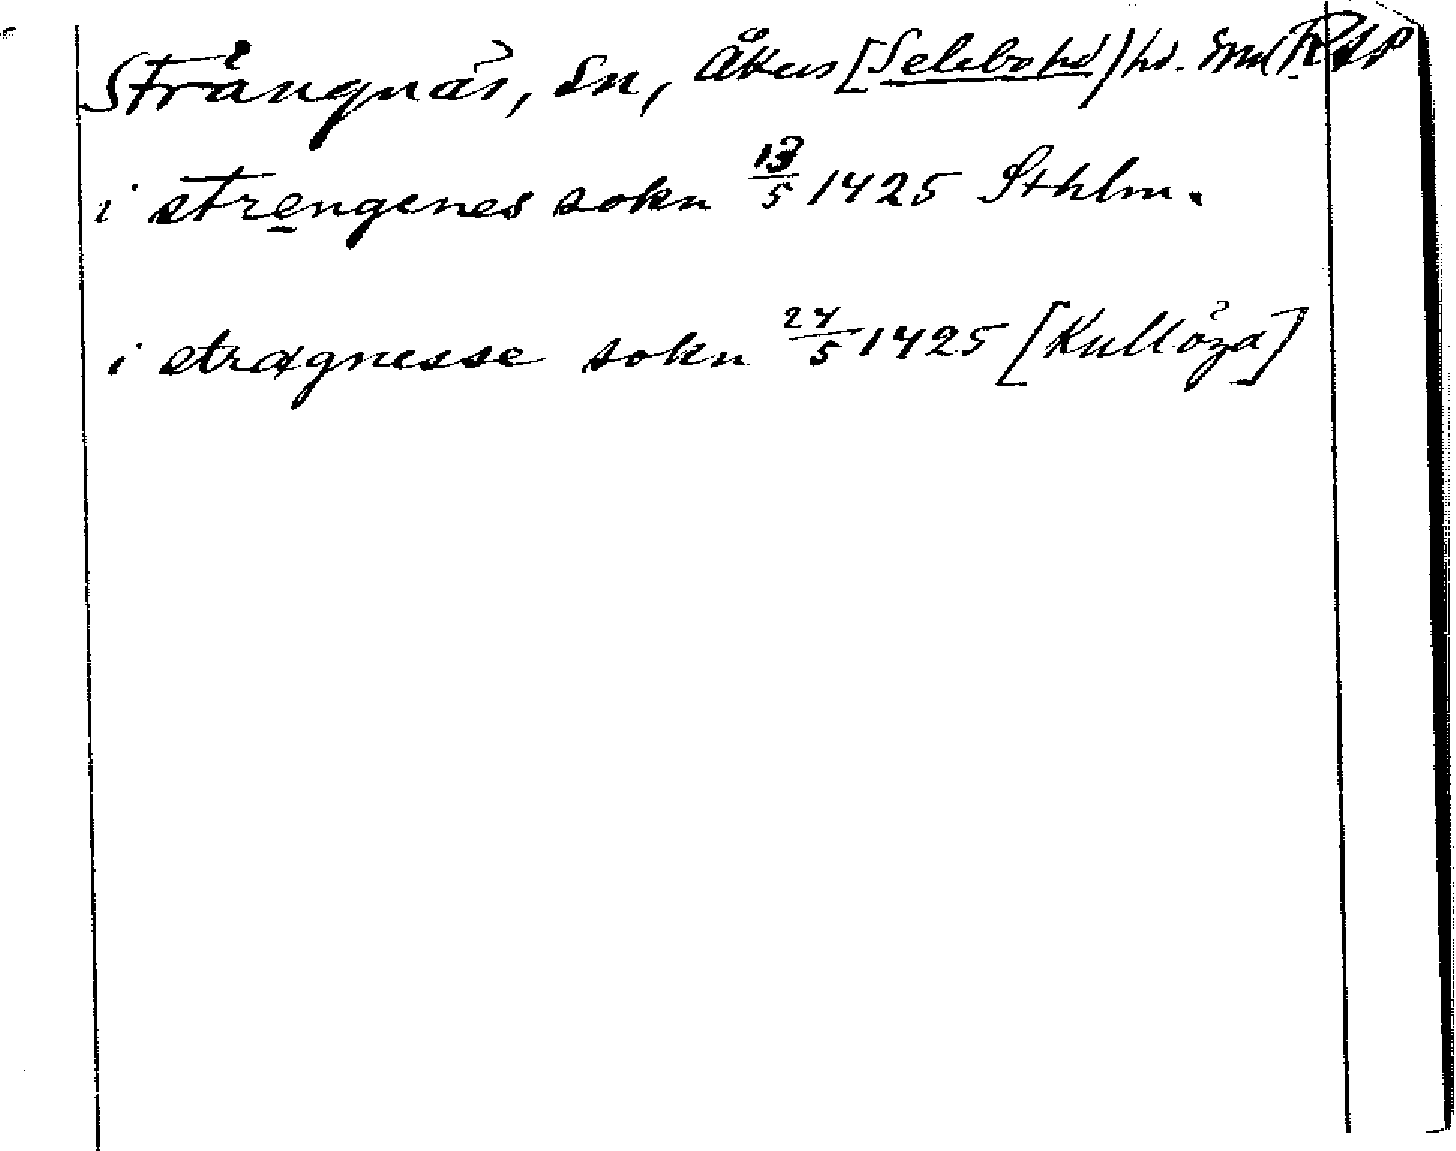 Strängnäs, sn, Åkers [Selebo hd] hd. Sml RAP
i strengenes sokn 13/5 1425 Sthlm.
i stragnesse sokn 24/5 1425 [Kullöza]